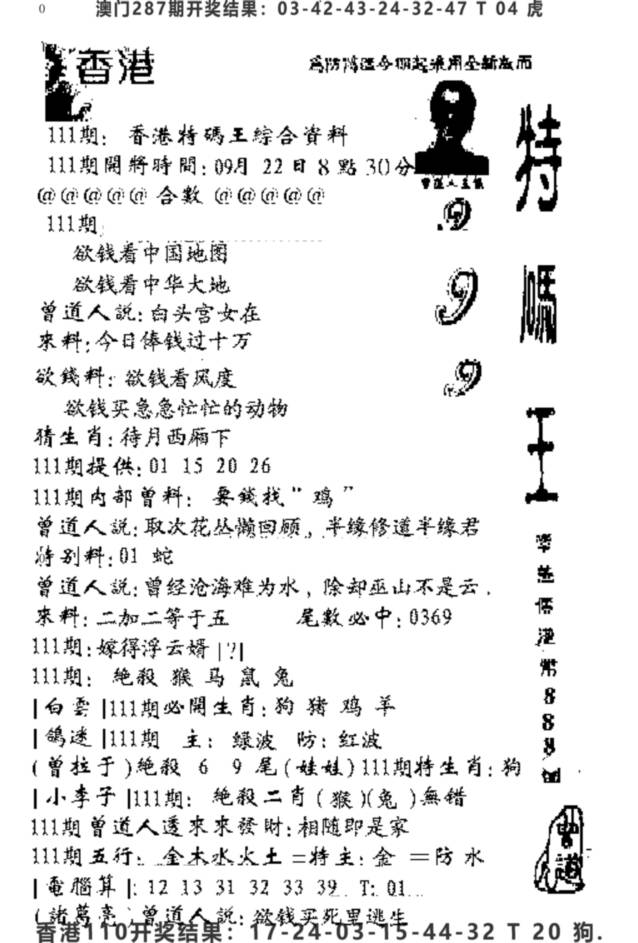 0
澳门287期开奖结果：03-42-43-24-32-47 T 04 虎
香港
111期：香港特碼王綜合資料
111期開將時間：09月 22日 8點 30分
@@@@@ 合數 @@@@@
111期
欲钱看中国地图
欲钱看中华大地
曾道人説：白头宫女在
來料：今日俸钱过十万
欲錢料：欲钱看风度
欲钱买急急忙忙的动物
猜生肖：待月西厢下
111期提供：01 15 20 26
111期内部曾料：要錢找“鸡”
曾道人説：取次花丛懒回顾，半缘修道半缘君
特别料：01 蛇
曾道人説：曾经沧海难为水，除却巫山不是云．
來料：二加二等于五 尾數必中：0369
111期：嫁得浮云婿|?|
111期：絶殺 猴 马 鼠 兔
|白雲|111期必開生肖：狗 猪 鸡 羊
|鴿迷|111期 主：绿波 防：红波
(曾拉于)絶殺 6 9 尾(娃娃)111期特生肖：狗
|小李子|111期：絶殺二肖(猴)(兔)無错
111期曾道人透來來發財：相随即是家
111期五行：金木水火土=特主：金 =防水
|電腦算|：12 13 31 32 33 39 T：01
(諸葛亮)曾道人説：欲钱买死里逃生
香港110开奖结果：17-24-03-15-44-32 T 20 狗.
9
9
9
特
碼
王
8
8
8
曾道